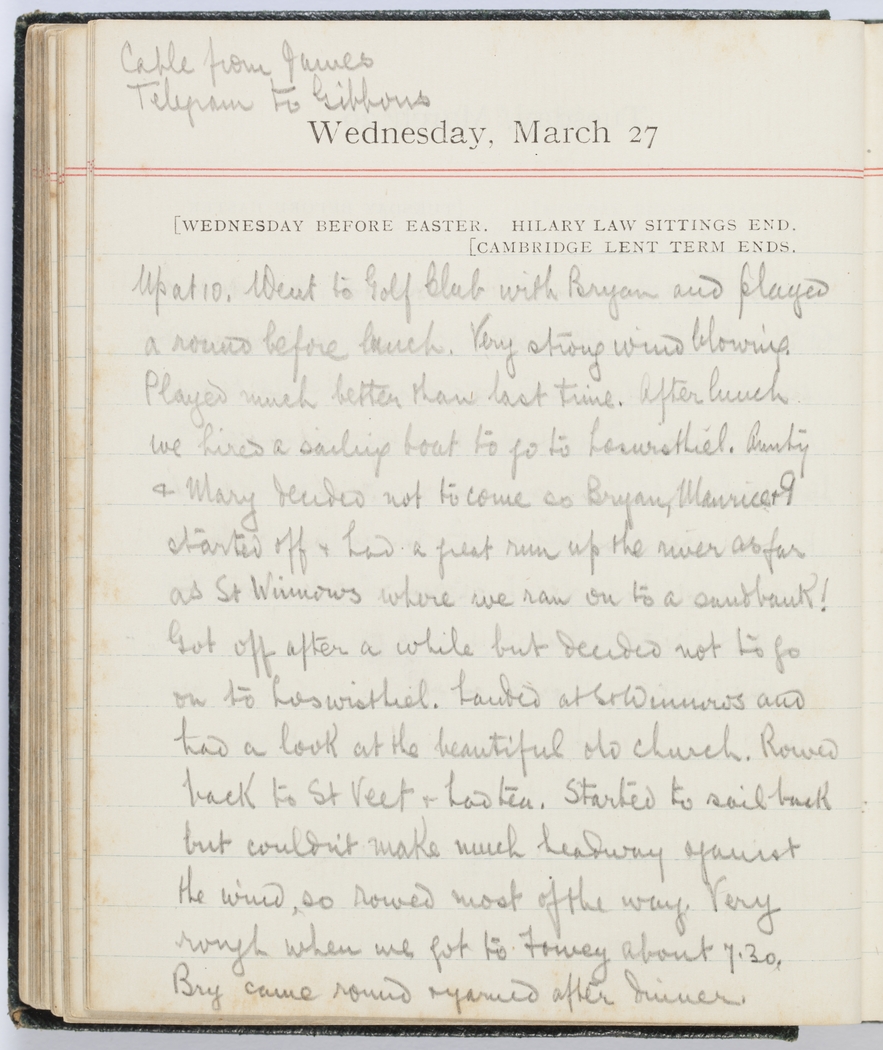 Cable from James
Telegram to Gibbons
Wednesday, March 27
[WEDNESDAY BEFORE EASTER. HILARY LAW SITTINGS END.
[CAMBRIDGE LENT TERM ENDS.
Up at 10. Went to Golf Club with Bryan and played
a round before lunch. Very strong wind blowing.
Played much better than last time. After lunch
we hired a sailing boat to go to Loswisthiel. Aunty
& Mary decided not to come so Bryan, Maurice & I
started off & had a great run up the river as far
as St Winnows where we ran on to a sandbank!
Got off after a while but decided not to go
on to Loswisthiel. Landed at St Winnows and
had a look at the beautiful old church. Rowed
back to St Veet & had tea. Started to sail back
but couldn't make much headway against
the wind, so rowed most of the way. Very
rough when we got to Fowey about 7.30.
Bry came round & yarned after dinner.